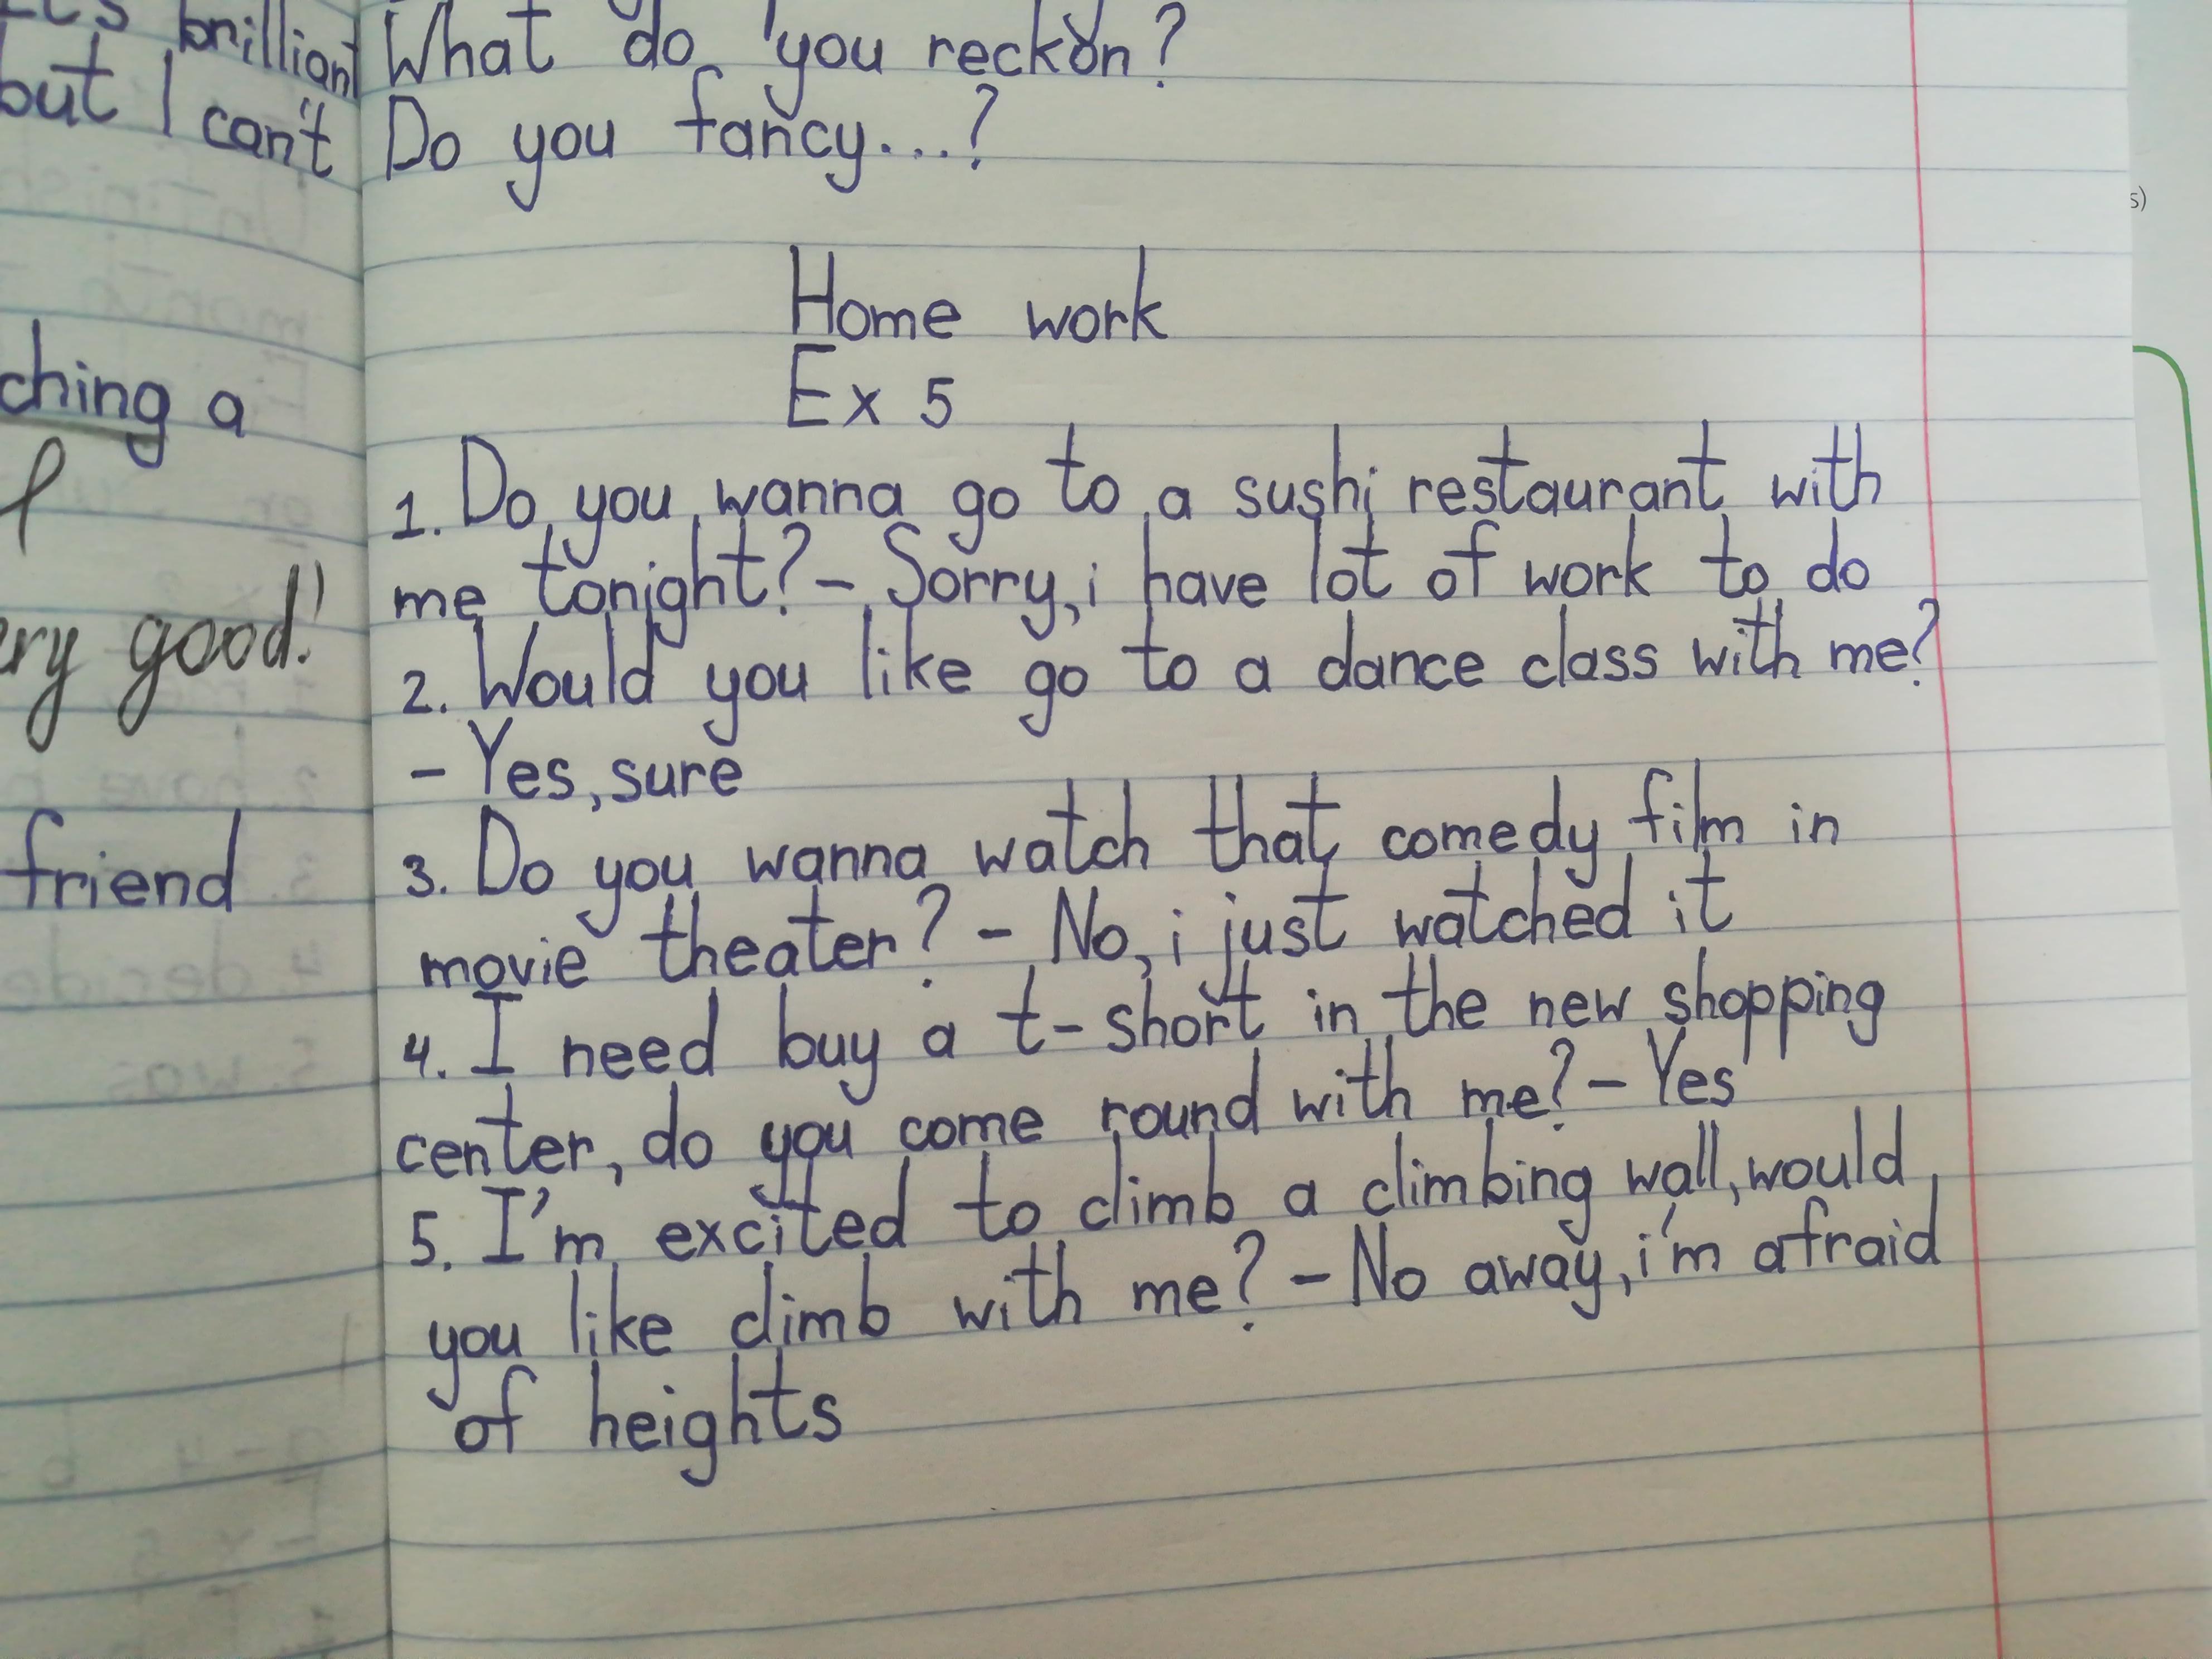 brilliant
but I can't
ching a
ry good!
friend
What do you reckon?
Do you fancy...?
Home work
Ex 5
1. Do you wanna go to a sushi restaurant with
me tonight? - Sorry, i have lot of work to do
2. Would you like go to a dance class with me?
- Yes, sure
3. Do you wanna watch that comedy film in
movie theater? - No, i just watched it
4. I need buy a t-short in the new shopping
center, do you come round with me? - Yes
5. I'm excited to climb a climbing wall, would
you like climb with me? - No away, i'm afraid
of heights
s)